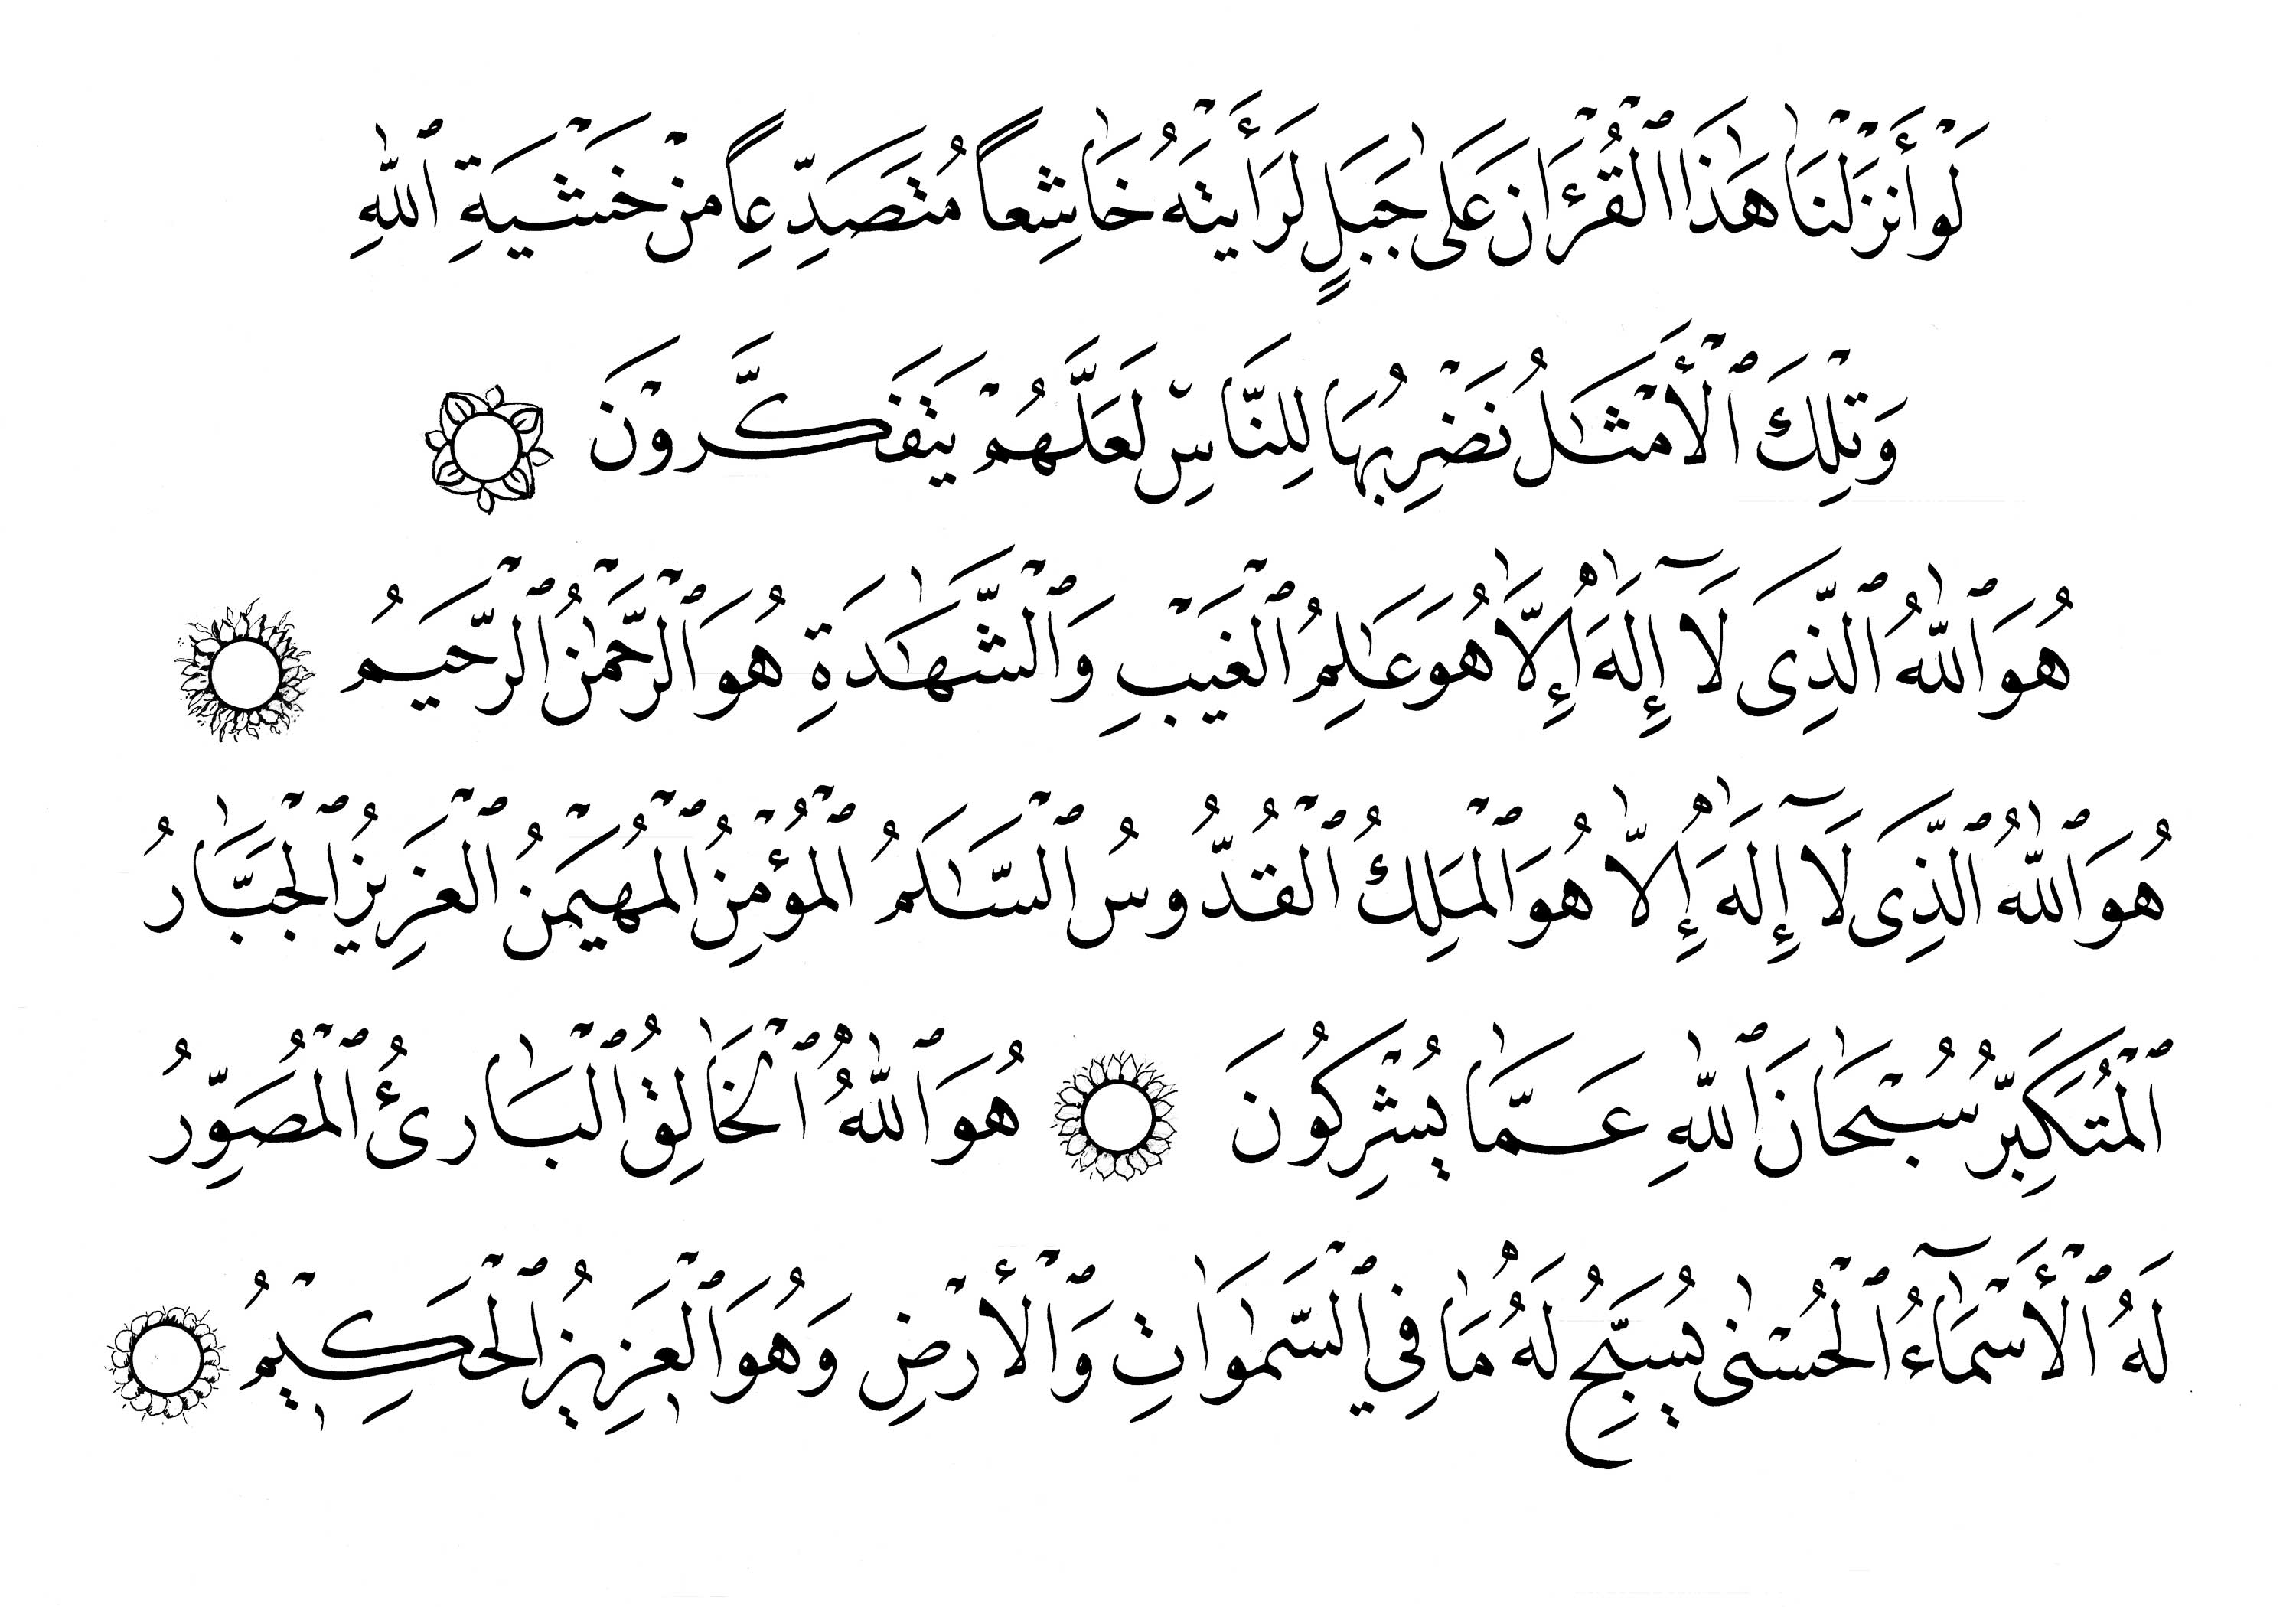 لَوْ أَنزَلْنَا هَٰذَا ٱلْقُرْءَانَ عَلَىٰ جَبَلٍ لَرَأَيْتَهُ خَاشِعاً مُتَصَدِّعاً مِنْ خَشْيَةِ ٱللَّهِ
وَتِلْكَ ٱلْأَمْثَٰلُ نَضْرِبُهَا لِلنَّاسِ لَعَلَّهُمْ يَتَفَكَّرُوْنَ
هُوَ ٱللَّهُ ٱلَّذِى لَآ إِلَٰهَ إِلَّا هُوَ عَٰلِمُ ٱلْغَيْبِ وَٱلشَّهَٰدَةِ هُوَ ٱلرَّحْمَٰنُ ٱلرَّحِيمُ
هُوَ ٱللَّهُ ٱلَّذِى لَآ إِلَٰهَ إِلَّا هُوَ ٱلْمَلِكُ ٱلْقُدُّوسُ ٱلسَّلَٰمُ ٱلْمُؤْمِنُ ٱلْمُهَيْمِنُ ٱلْعَزِيزُ ٱلْجَبَّارُ
ٱلْمُتَكَبِّرُ سُبْحَانَ ٱللَّهِ عَمَّا يُشْرِكُونَ هُوَ ٱللَّهُ ٱلْخَالِقُ ٱلْبَارِئُ ٱلْمُصَوِّرُ
لَهُ ٱلْأَسْمَآءُ ٱلْحُسْنَىٰ يُسَبِّحُ لَهُ مَا فِي ٱلسَّمَٰوَاتِ وَٱلْأَرْضِ وَهُوَ ٱلْعَزِيزُ ٱلْحَكِيْمُ